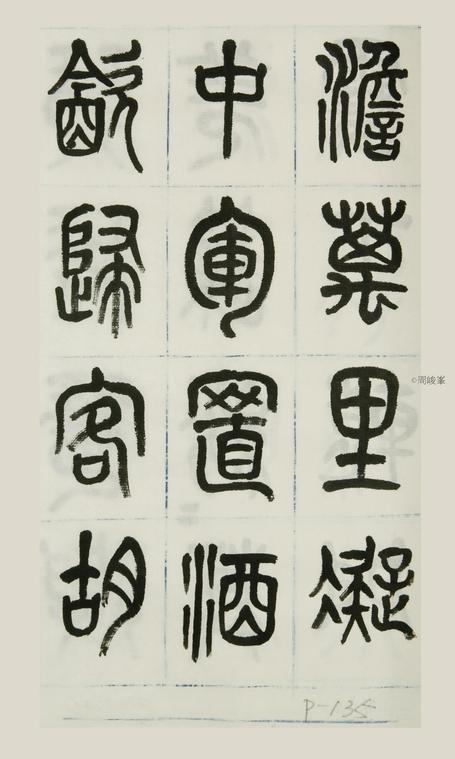 澹萬里凝
中軍置酒
飲歸客胡
P-135
©周峻峯